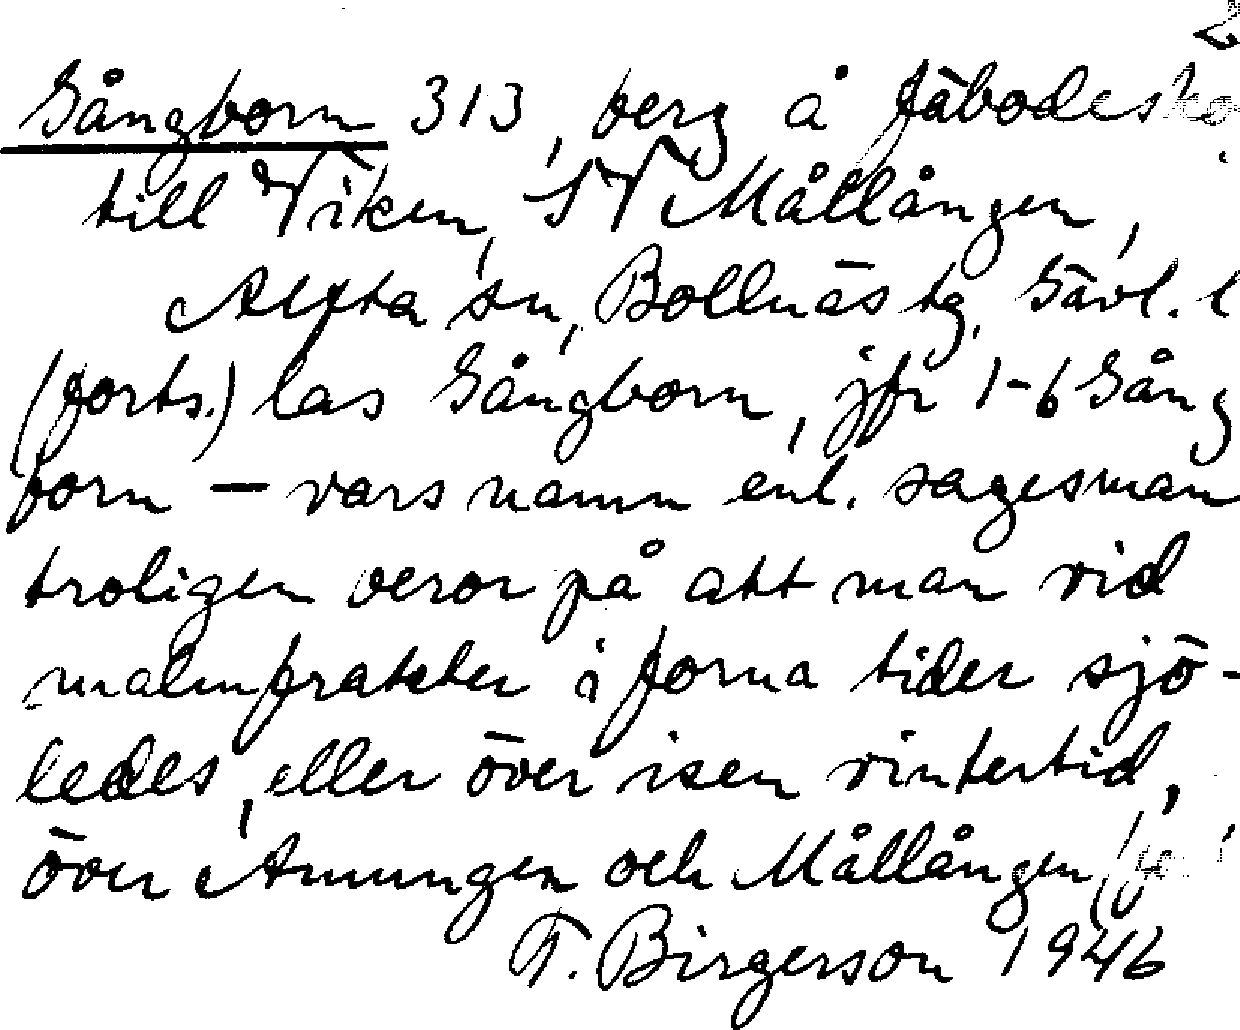 2
Gångborn 313, berg å fäbodesko
till Viken, SV Mållången,
Alfta sn, Bollnäs tg, Gävl. l
(forts.) las Gångborn, jfr 1-6 Gång
born – vars namn enl. sagesman
troligen beror på att man vid
malmfrakter i forna tider sjö-
ledes, eller över isen vintertid,
över Amungen och Mållången
T. Birgerson 1946